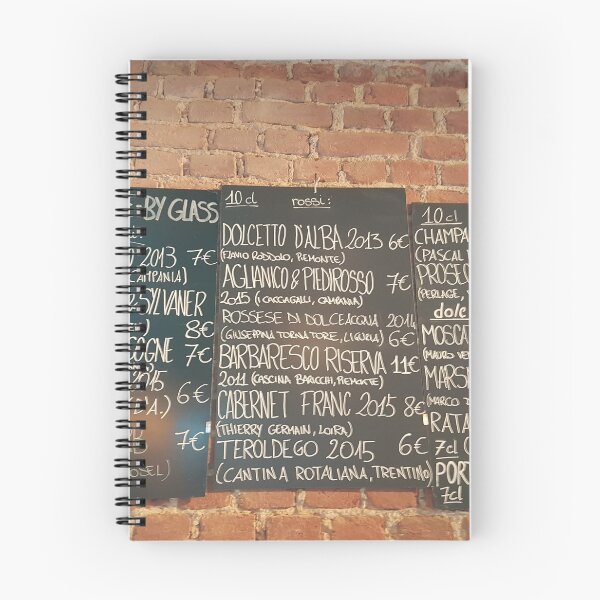 BY GLASS
2013 7€
CAMPANIA)
SYLVANER
8€
OGNE 7€
2015
6€
D.A.)
7€
10 cl rossi:
DOLCETTO D'ALBA 2013 6€
(FLAVIO RODDOLO, PIEMONTE)
AGLIANICO & PIEDIROSSO 7€
2015 (I CACCIAGALLI, CAMPANIA)
ROSSESE DI DOLCEACQUA 2014
(GIUSEPPINA TORNATORE, LIGURIA) 6€
BARBARESCO RISERVA 11€
2011 (CASCINA BARICCHI, PIEMONTE)
CABERNET FRANC 2015 8€
(THIERRY GERMAIN, LOIRA)
TEROLDEGO 2015 6€
(CANTINA ROTALIANA, TRENTINO)
10 cl
CHAMPA
(PASCAL
PROSEC
(PERLAGE,
dolc
MOSCA
(MAURO VE
MARS
(MARCO
RATA
7cl
PORT
7cl